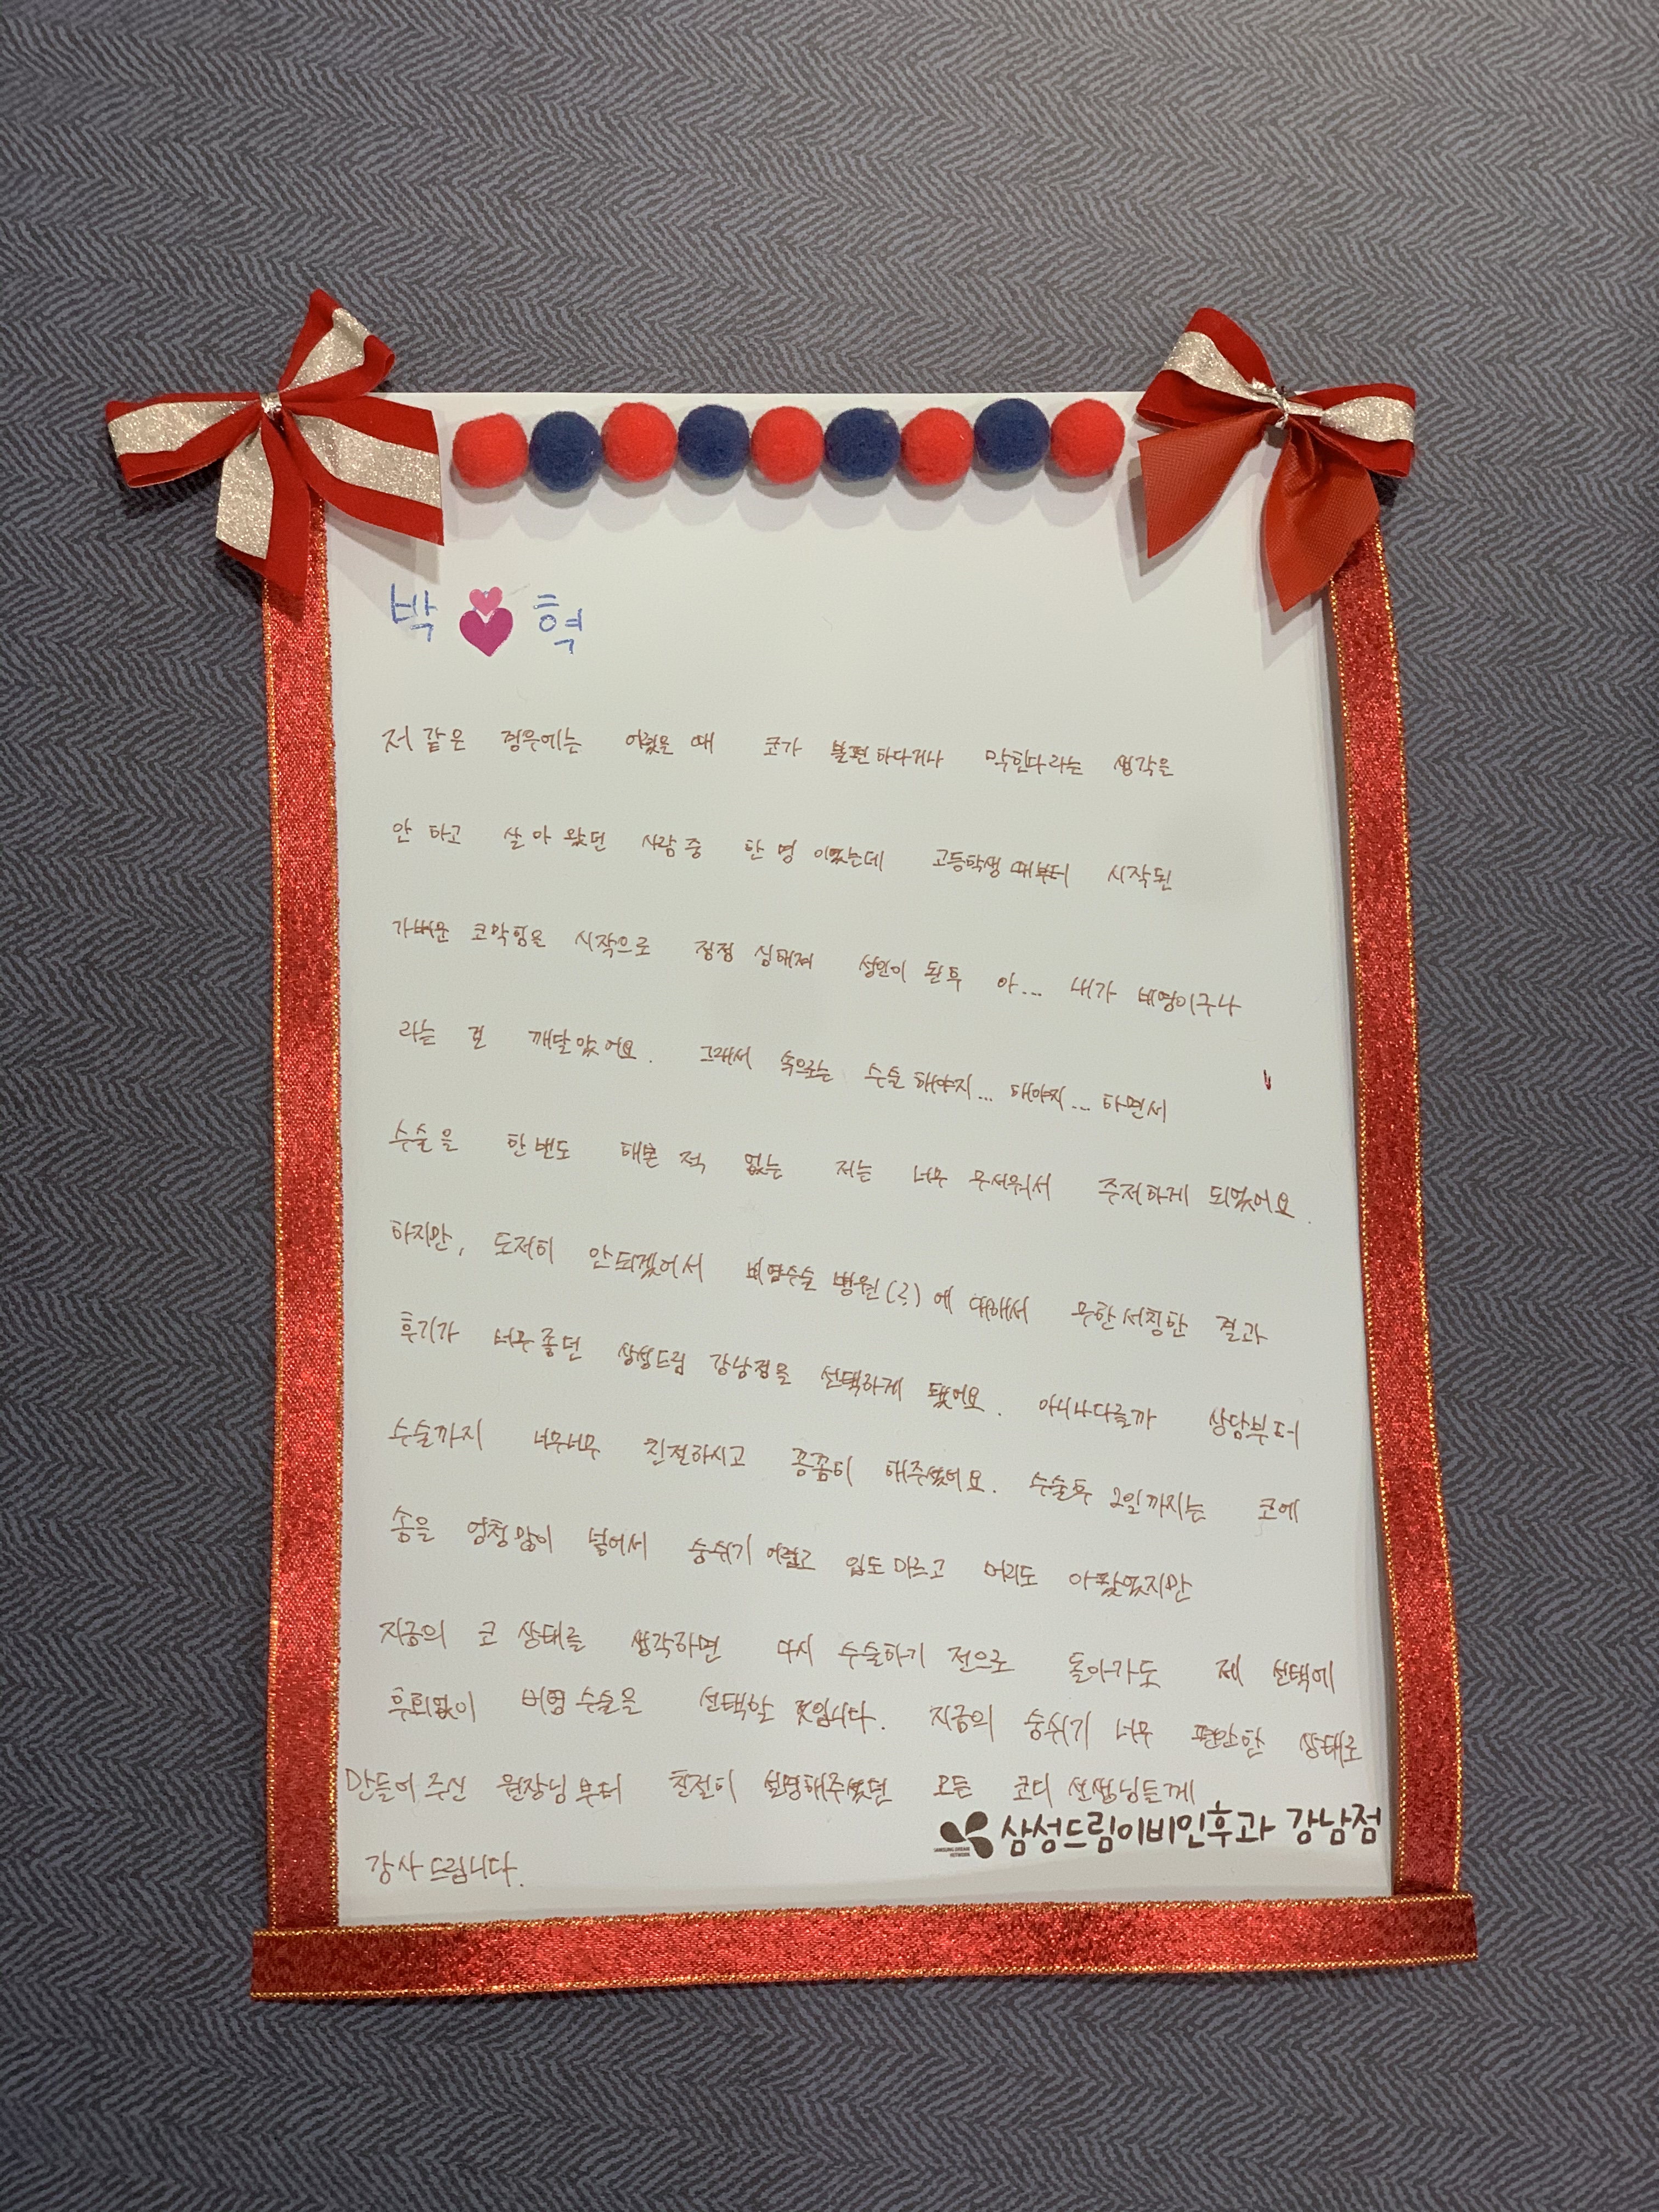 박 혁
저 같은 경우에는 어렸을 때 코가 불편하다거나 막힌다라는 생각을
안 하고 살아왔던 사람 중 한 명이었는데 고등학생 때부터 시작된
가벼운 코막힘을 시작으로 점점 심해져 성인이 된 후 아... 내가 비염이구나
라는 걸 깨달았어요. 그래서 속으로는 수술해야지... 해야지... 하면서
수술을 한번도 해본 적 없는 저는 너무 무서워서 주저하게 되었어요.
하지만, 도저히 안되겠어서 비염수술 병원(?)에 대해서 무한서칭한 결과
후기가 너무좋던 삼성드림 강남점을 선택하게 됐어요. 아니나다를까 상담부터
수술까지 너무너무 친절하시고 꼼꼼히 해주셨어요. 수술후 2일까지는 코에
솜을 엄청많이 넣어서 숨쉬기 어렵고 입도 마르고 머리도 아팠었지만
지금의 코 상태를 생각하면 다시 수술하기 전으로 돌아가도 제 선택에
후회없이 비염수술을 선택할 것입니다. 지금의 숨쉬기 너무 편안한 상태로
만들어주신 원장님부터 친절히 설명해주셨던 모든 코디 선생님들께
감사드립니다.
SAMSUNG DREAM NETWORK 삼성드림이비인후과 강남점